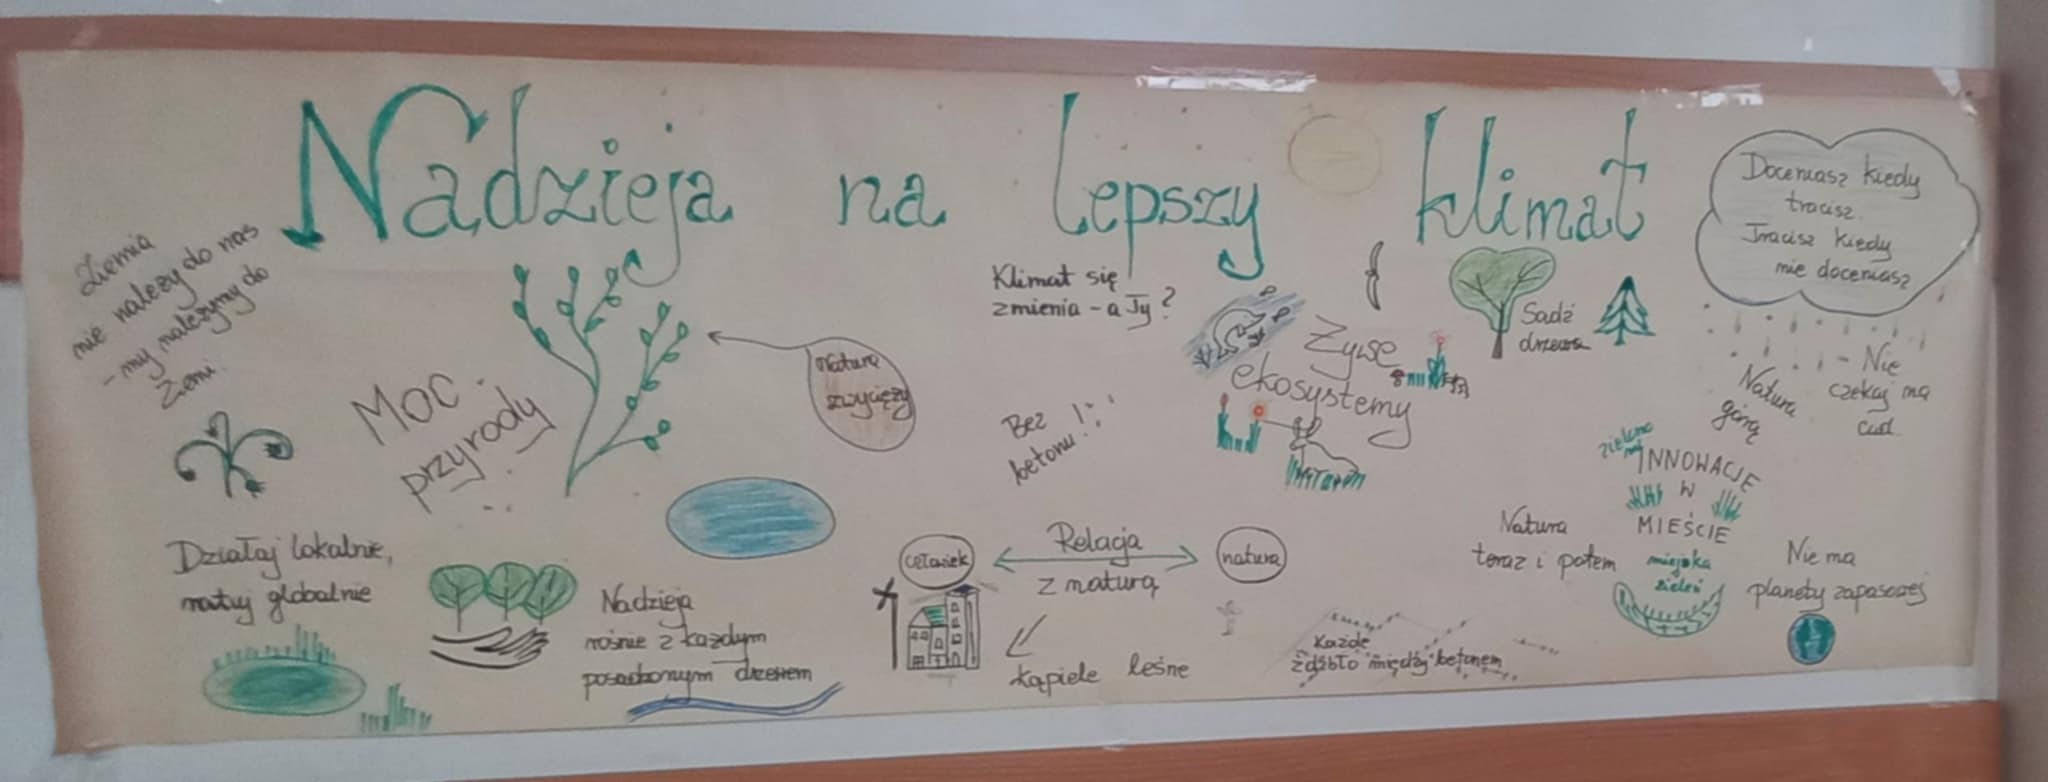 Nadzieja na lepszy klimat
Ziemia
nie należy do nas
- my należymy do
Ziemi.
Moc
przyrody
Natura
zwycięży
Klimat się
zmienia - a Ty?
Bez
betonu!
Żywe
ekosystemy
Sadź
drzewa
Doceniasz kiedy
tracisz.
Tracisz kiedy
nie doceniasz
Natura
górą
- Nie
czekaj na
cud.
zielono
mi
INNOWACJE
W
MIEŚCIE
miejska
zieleń
Działaj lokalnie,
ratuj globalnie
Nadzieja
rośnie z każdym
posadzonym drzewem
człowiek
Relacja
z naturą
natura
kąpiele leśne
Każde
źdźbło między betonem
Natura
teraz i potem
Nie ma
planety zapasowej